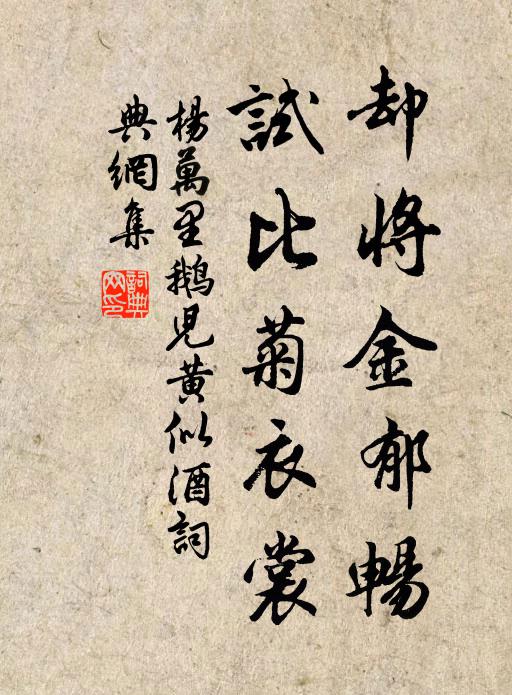 却將金郁暢
試比菊衣裳
楊萬里鵝兒黃似酒詞
典網集
詞典網印